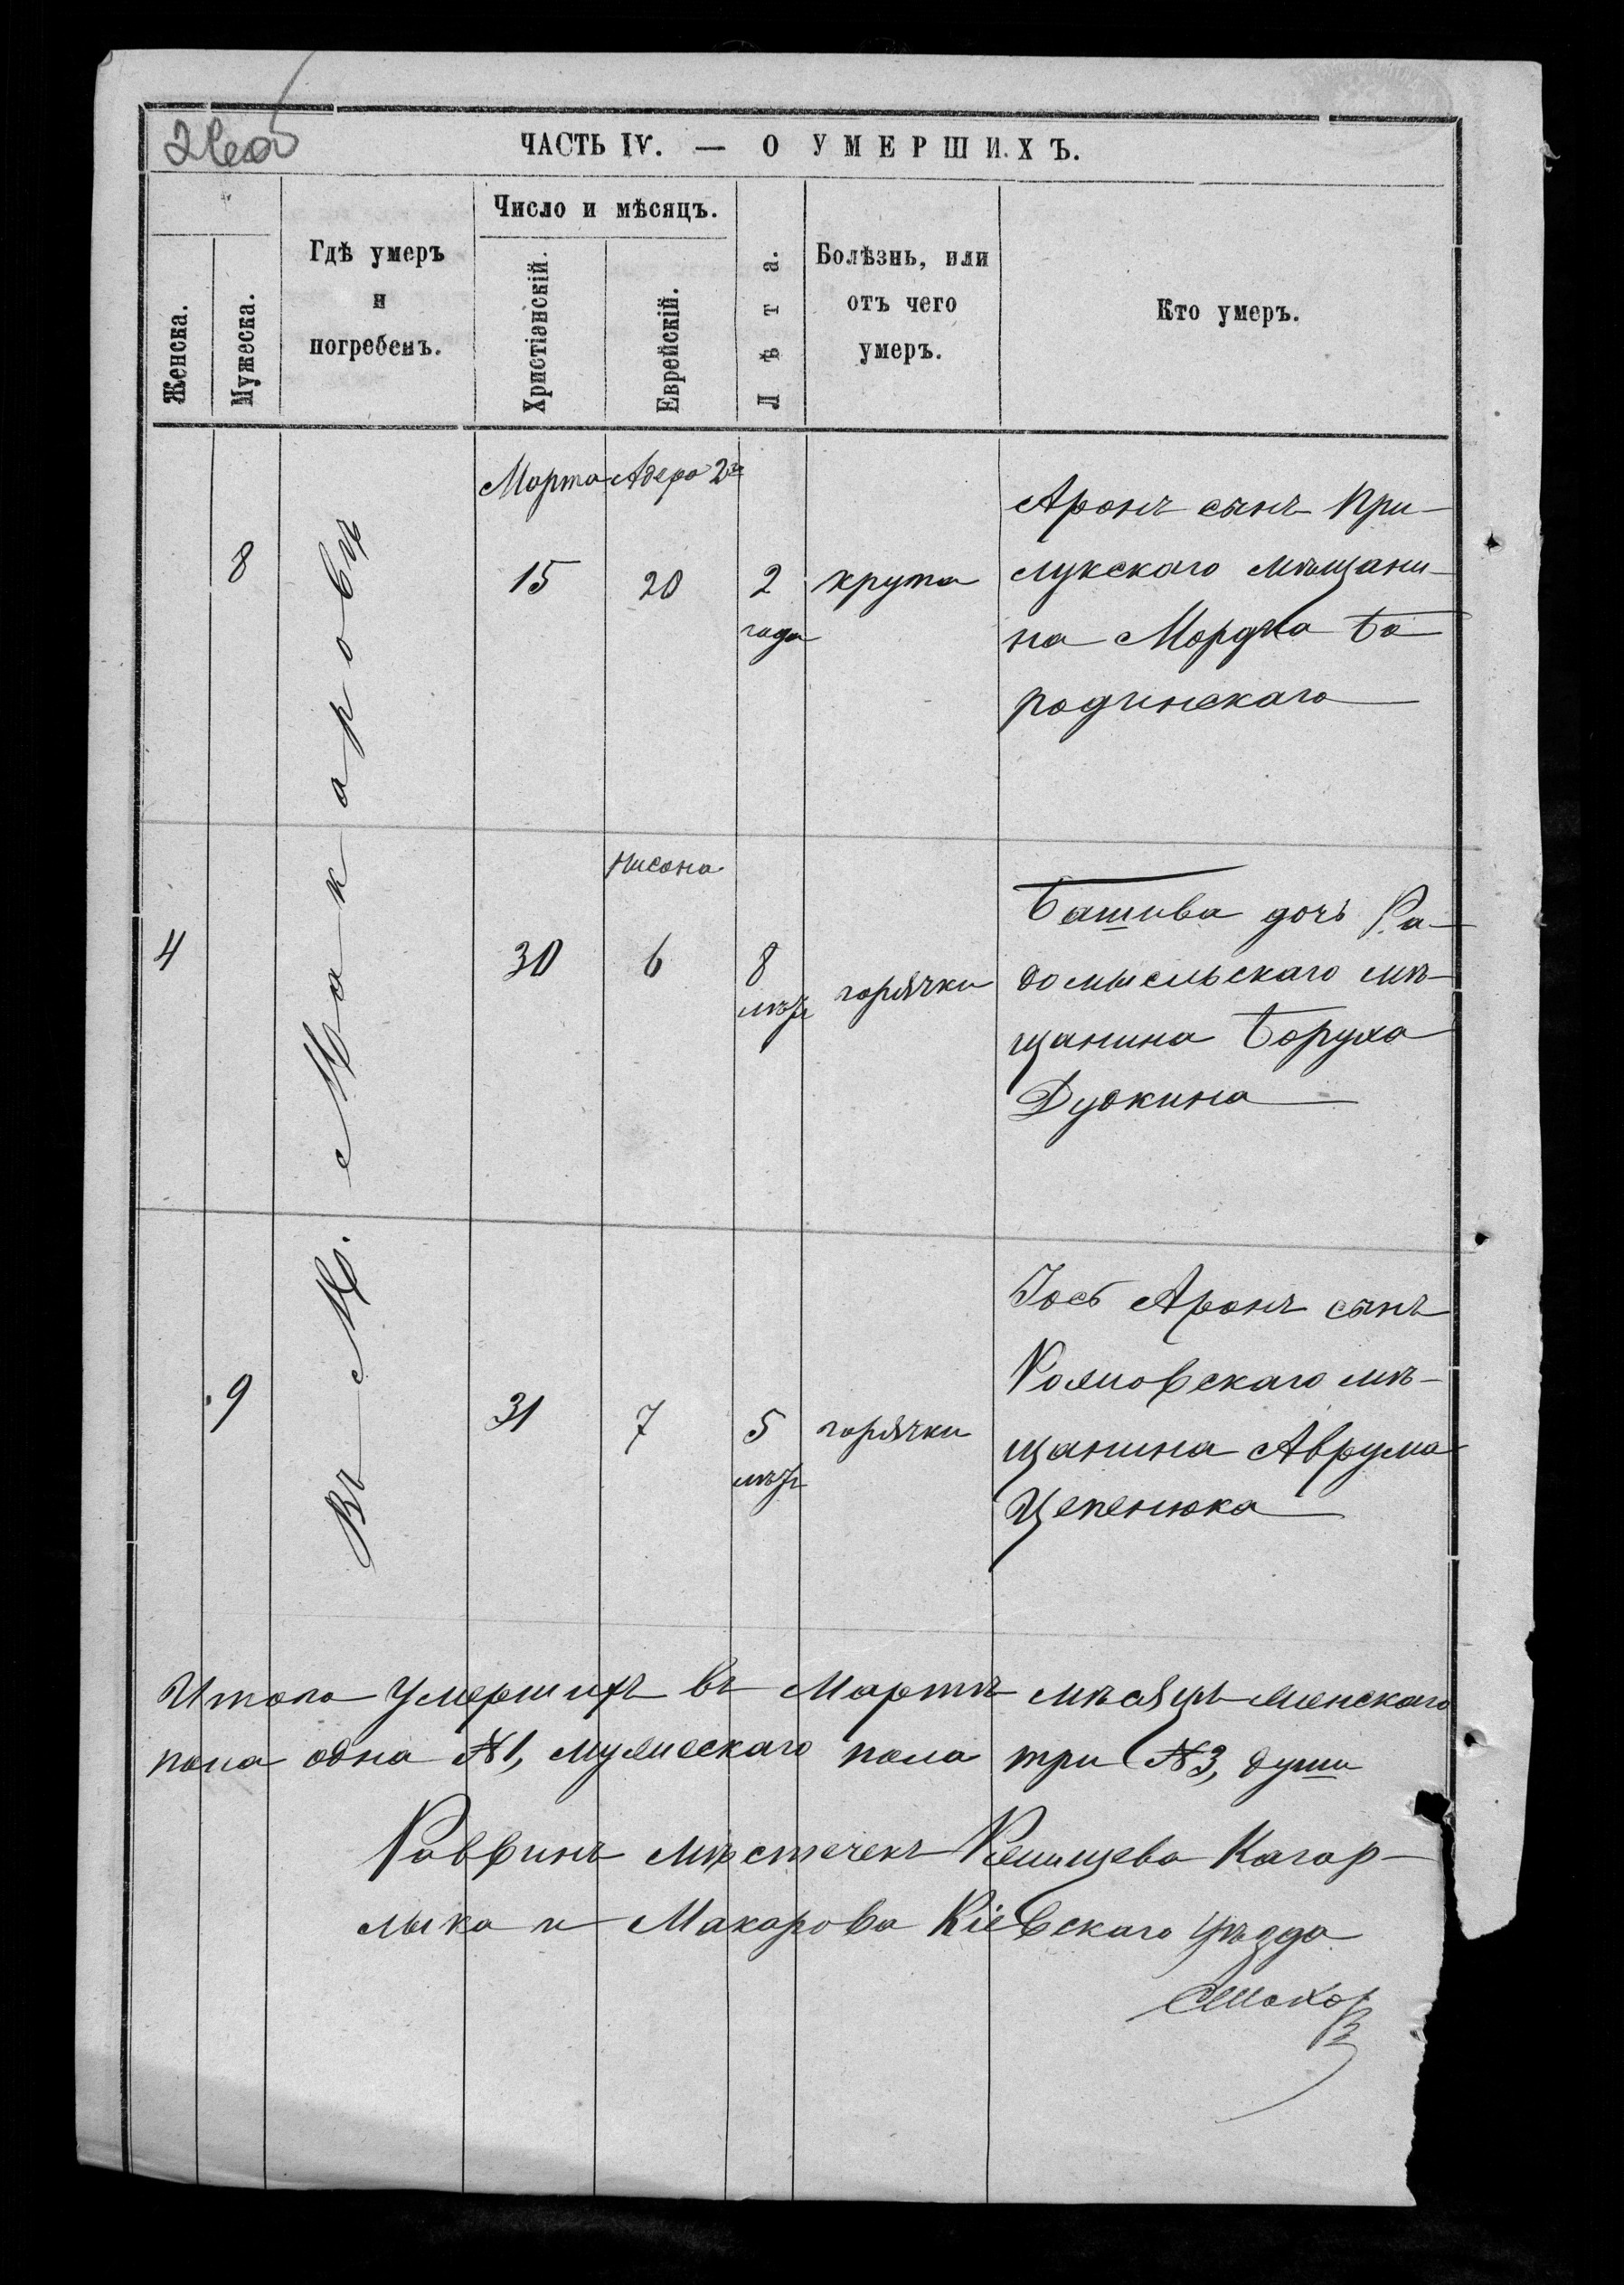 ЧАСТЬ IV. — О УМЕРШИХЪ.
Женска.
Мужеска.
Гдѣ умеръ
и
погребенъ.
Число и мѣсяцъ.
Христіанскій.
Еврейскій.
Лѣта.
Болѣзнь, или
отъ чего
умеръ.
Кто умеръ.
Въ М. Макаровѣ
Марта Адара 2го
8 15 20 2 года крупа
Аронъ сынъ При-
лукскаго мѣщани-
на Мордка Ба
родинскаго
Нисана
4 30 6 8 лѣтъ горячки
Башива дочь Ра-
домысльскаго мѣ-
щанина Боруха
Дудкина
9 31 7 5 лѣтъ горячки
Іось Аронъ сынъ
мѣ-
щанина Аврума
Цепенюка
Итого умершихъ въ Мартѣ мѣсяцѣ женскаго
пола одна №1, мужескаго пола три №3, души
Раввинъ мѣстечекъ Ржищева Кагар-
лыка и Макарова Кіевскаго уѣзда